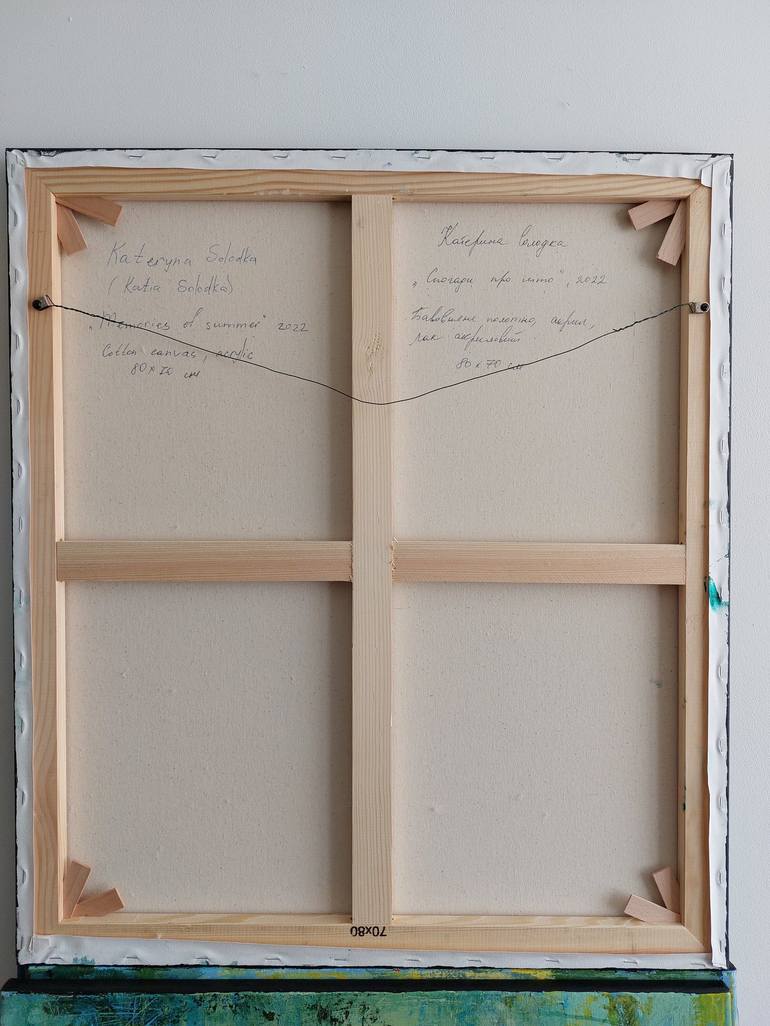 Kateryna Solodka
(Katia Solodka)
„Memories of summer" 2022
Cotton canvas, acrylic
80 x 70 cm
Катерина Солодка
„Спогади про літо", 2022
Бавовняне полотно, акрил,
лак акриловий
80 x 70 см
70x80